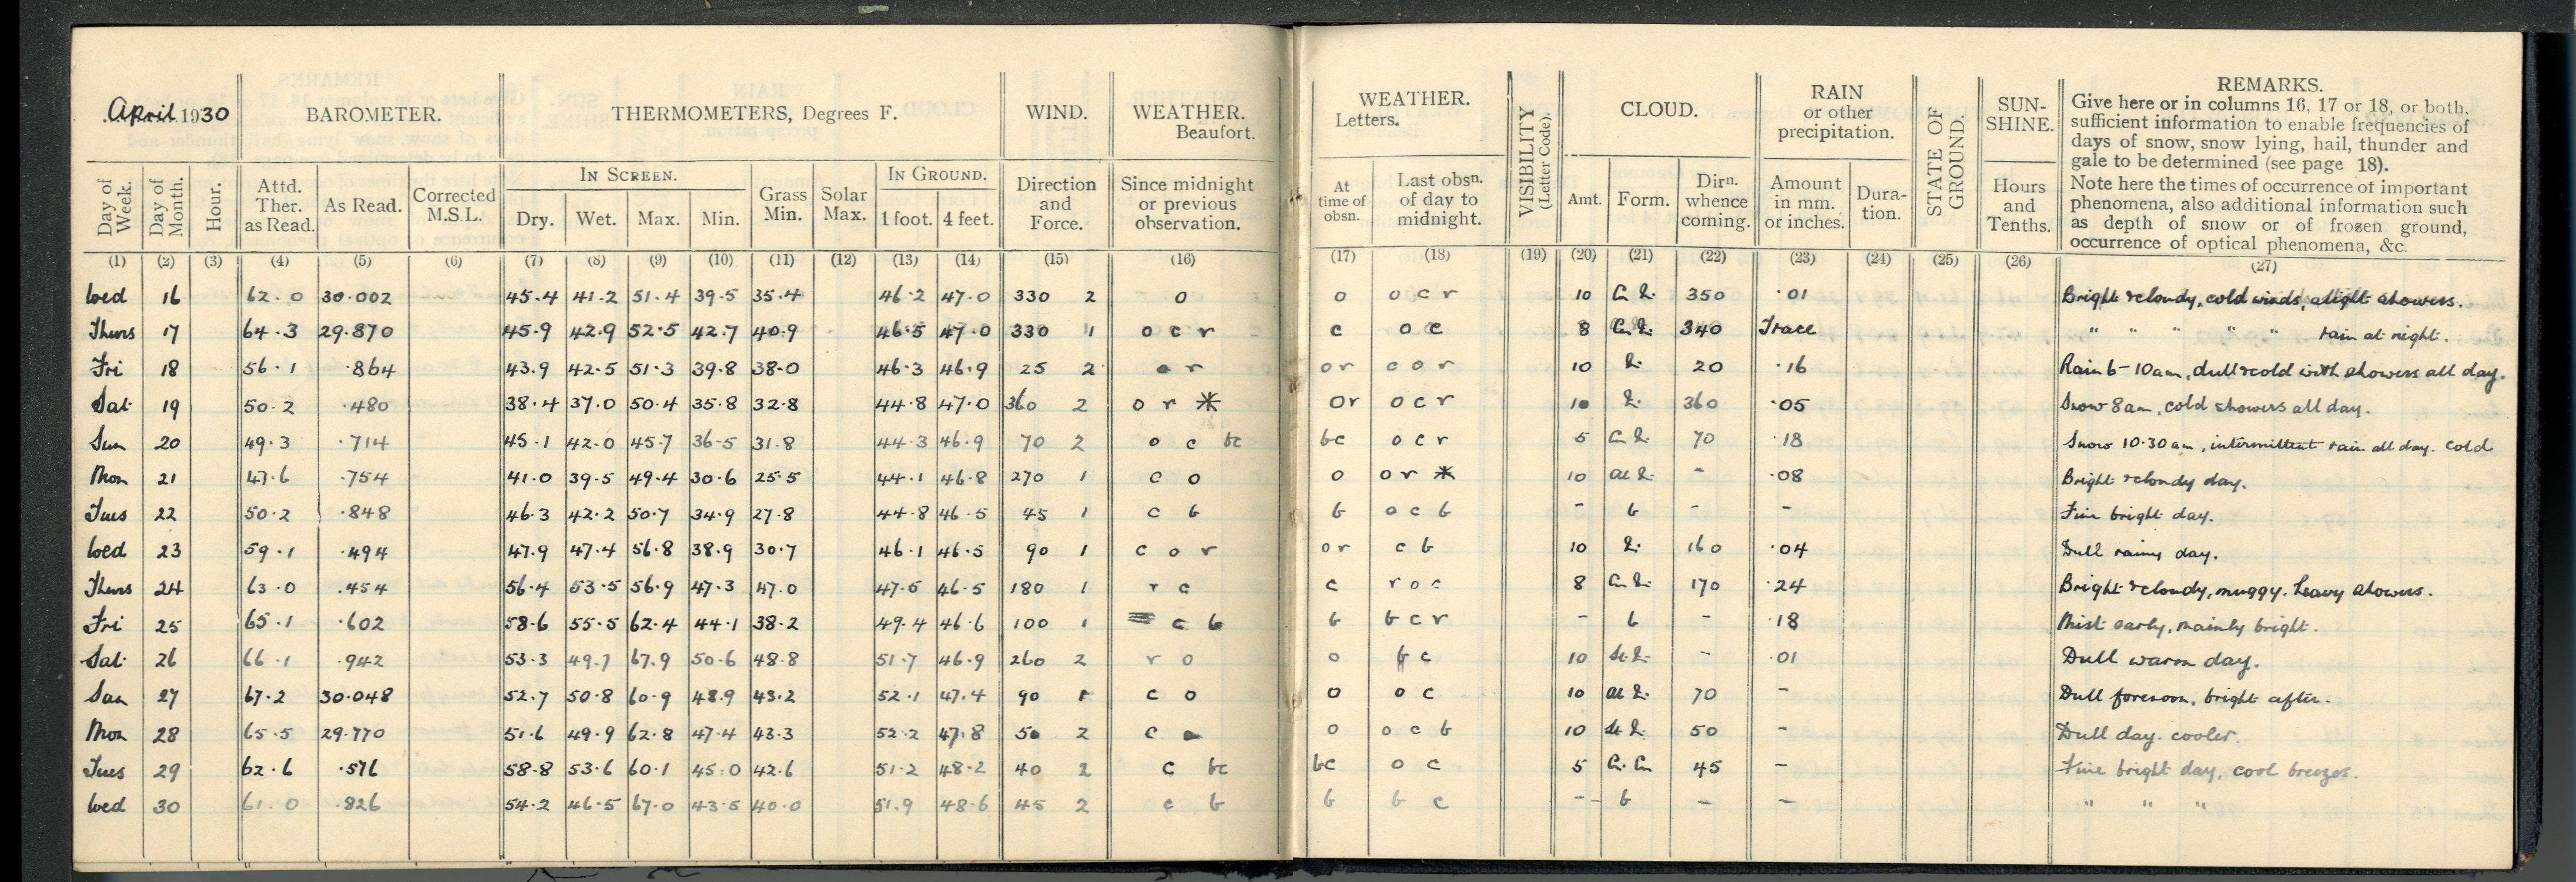 April 1930 BAROMETER. THERMOMETERS, Degrees F. WIND. WEATHER. Beaufort. WEATHER. Letters. VISIBILITY (Letter Code). CLOUD. RAIN or other precipitation. STATE OF GROUND. SUN-SHINE. REMARKS.
Give here or in columns 16, 17 or 18, or both, sufficient information to enable frequencies of days of snow, snow lying, hail, thunder and gale to be determined (see page 18).
Note here the times of occurrence of important phenomena, also additional information such as depth of snow or of frozen ground, occurrence of optical phenomena, &c.
IN SCREEN. IN GROUND.
Day of Week. Day of Month. Hour. Attd. Ther. as Read. As Read. Corrected M.S.L. Dry. Wet. Max. Min. Grass Min. Solar Max. 1 foot. 4 feet. Direction and Force. Since midnight or previous observation. At time of obsn. Last obsn. of day to midnight. Amt. Form. Dirn. whence coming. Amount in mm. or inches. Dura-tion. Hours and Tenths.
(1) (2) (3) (4) (5) (6) (7) (8) (9) (10) (11) (12) (13) (14) (15) (16) (17) (18) (19) (20) (21) (22) (23) (24) (25) (26) (27)
Wed 16 62.0 30.002 45.4 41.2 51.4 39.5 35.4 46.2 47.0 330 2 o o o c r 10 350 .01 Bright & cloudy, cold winds, slight showers.
Thurs 17 64.3 29.870 45.9 42.9 52.5 42.7 40.9 46.5 47.0 330 1 o c r c o c 8 340 Trace " " " " " rain at night.
Fri 18 56.1 .864 43.9 42.5 51.3 39.8 38.0 46.3 46.9 25 2 o r o r c o r 10 20 .16 Rain 6-10am, dull & cold with showers all day.
Sat 19 50.2 .480 38.4 37.0 50.4 35.8 32.8 44.8 47.0 360 2 o r * o r o c r 10 360 .05 Snow 8am, cold showers all day.
Sun 20 49.3 .714 45.1 42.0 45.7 36.5 31.8 44.3 46.9 70 2 o c bc bc o c r 5 70 .18 Snow 10.30 am, intermittent rain all day. cold
Mon 21 47.6 .754 41.0 39.5 49.4 30.6 25.5 44.1 46.8 270 1 c o o o r * 10 - .08 Bright & cloudy day.
Tues 22 50.2 .848 46.3 42.2 50.7 34.9 27.8 44.8 46.5 45 1 c b b o c b - b - - Fine bright day.
Wed 23 59.1 .494 47.9 47.4 56.8 38.9 30.7 46.1 46.5 90 1 c o r o r c b 10 160 .04 Dull rainy day.
Thurs 24 63.0 .454 56.4 53.5 56.9 47.3 47.0 47.5 46.5 180 1 r c c r o c 8 170 .24 Bright & cloudy, muggy. heavy showers.
Fri 25 65.1 .602 58.6 55.5 62.4 44.1 38.2 49.4 46.6 100 1 ≡ c b b b c r - b - .18 Mist early, mainly bright.
Sat 26 66.1 .942 53.3 49.7 67.9 50.6 48.8 51.7 46.9 260 2 r o o b c 10 - .01 Dull warm day.
Sun 27 67.2 30.048 52.7 50.8 60.9 48.9 43.2 52.1 47.4 90 1 c o o o c 10 70 - Dull forenoon, bright after.
Mon 28 65.5 29.770 51.6 49.9 62.8 47.4 43.3 52.2 47.8 50 2 c o o o c b 10 50 - Dull day. cooler.
Tues 29 62.6 .576 58.8 53.6 60.1 45.0 42.6 51.2 48.2 40 2 c bc bc o c 5 45 - Fine bright day, cool breezes.
Wed 30 61.0 .826 54.2 46.5 67.0 43.5 40.0 51.9 48.6 45 2 c b b b c - b - - " " "